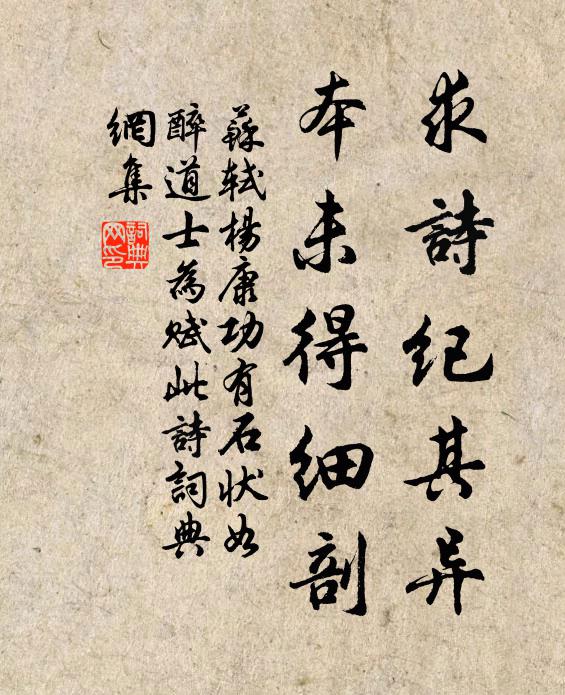 求詩紀其异
本未得細剖
蘇軾楊康功有石状如
醉道士為賦此詩詞典
網集
詞典
网印